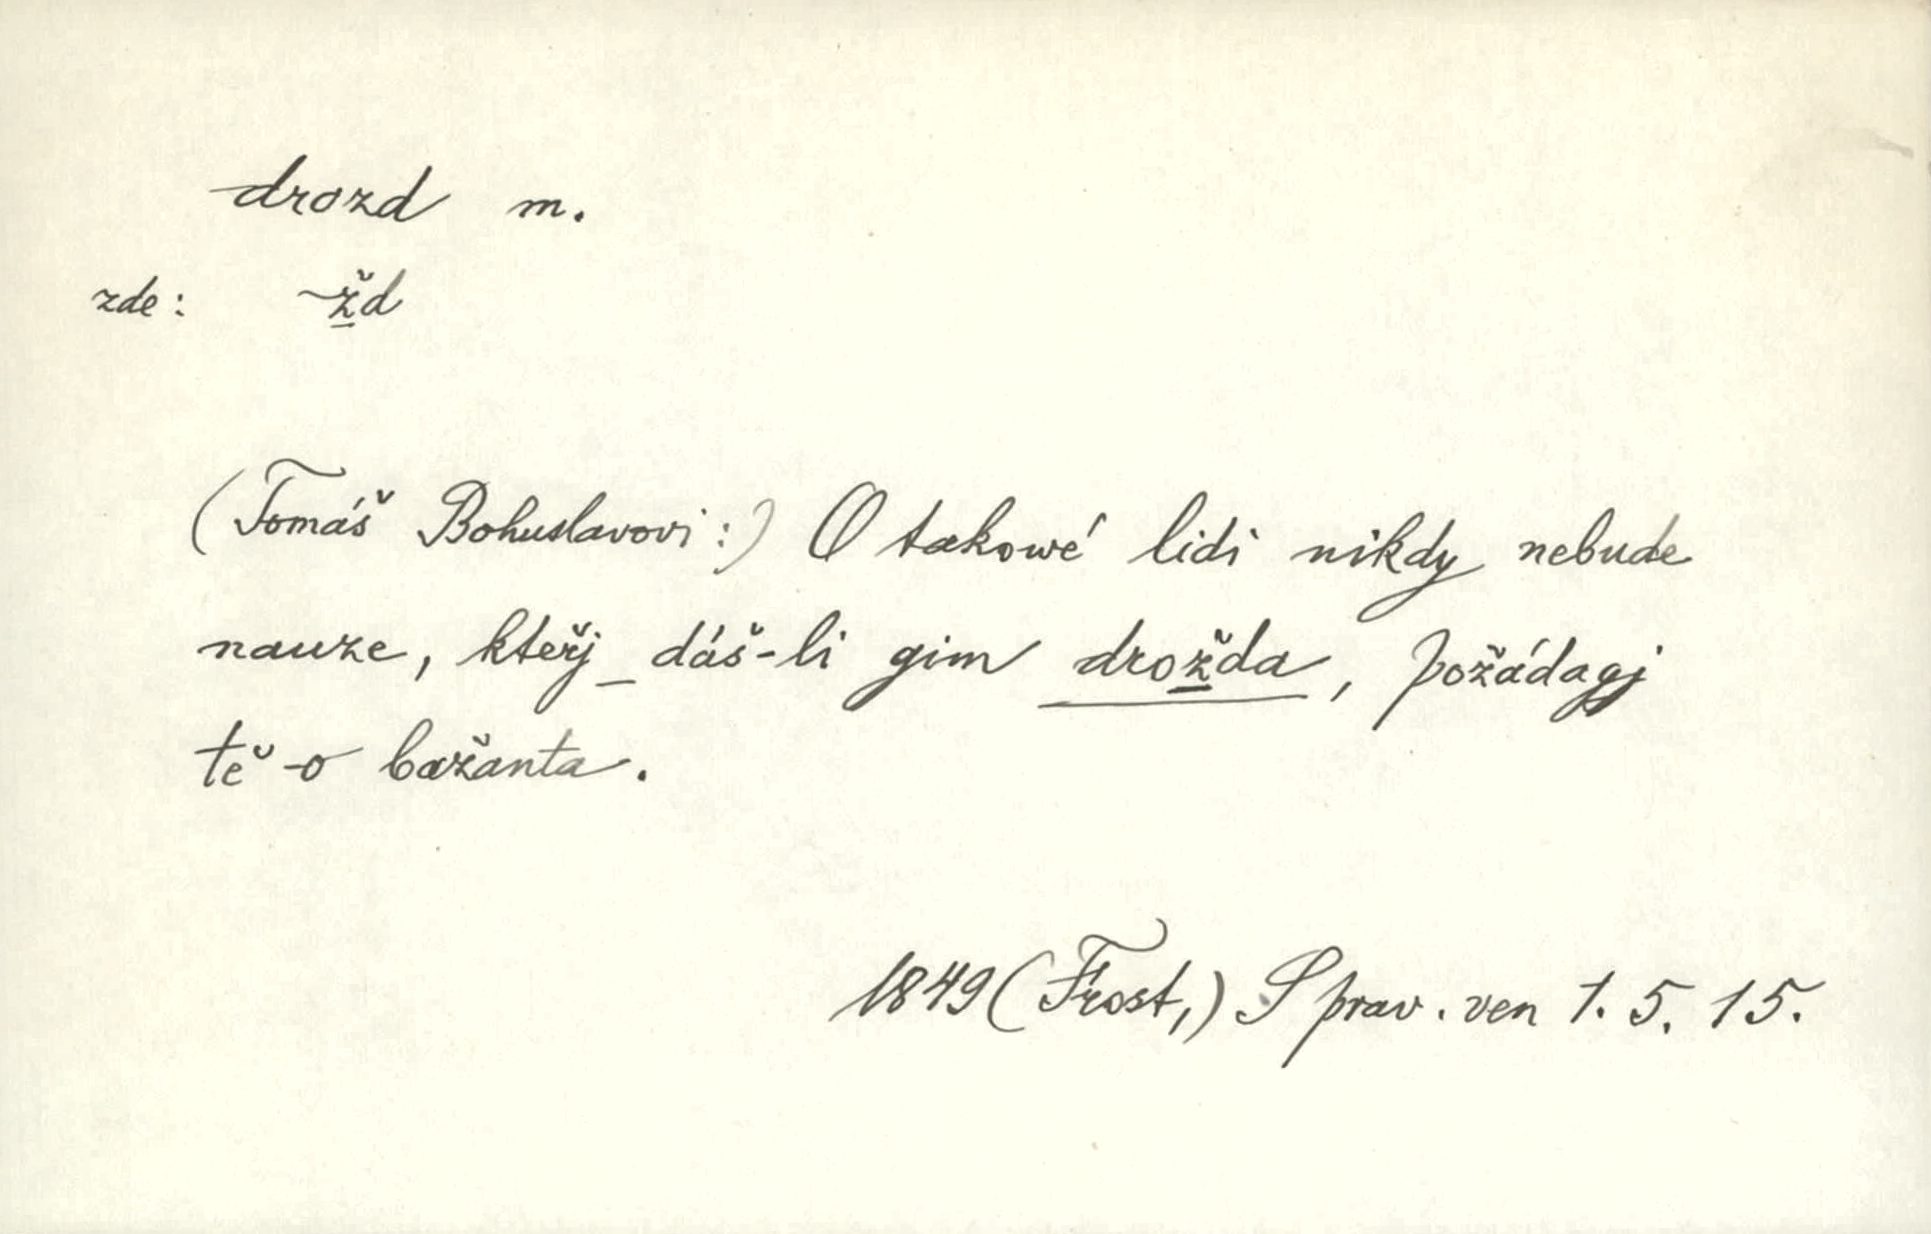 drozd m.
zde: -žd
(Tomáš Bohuslavovi:) O takowé lidi nikdy nebude
nauze, kteřj dáš-li gim drožda, požádagj
tě o bažanta.
1849 (Frost,) Sprav. ven 1. 5. 15.